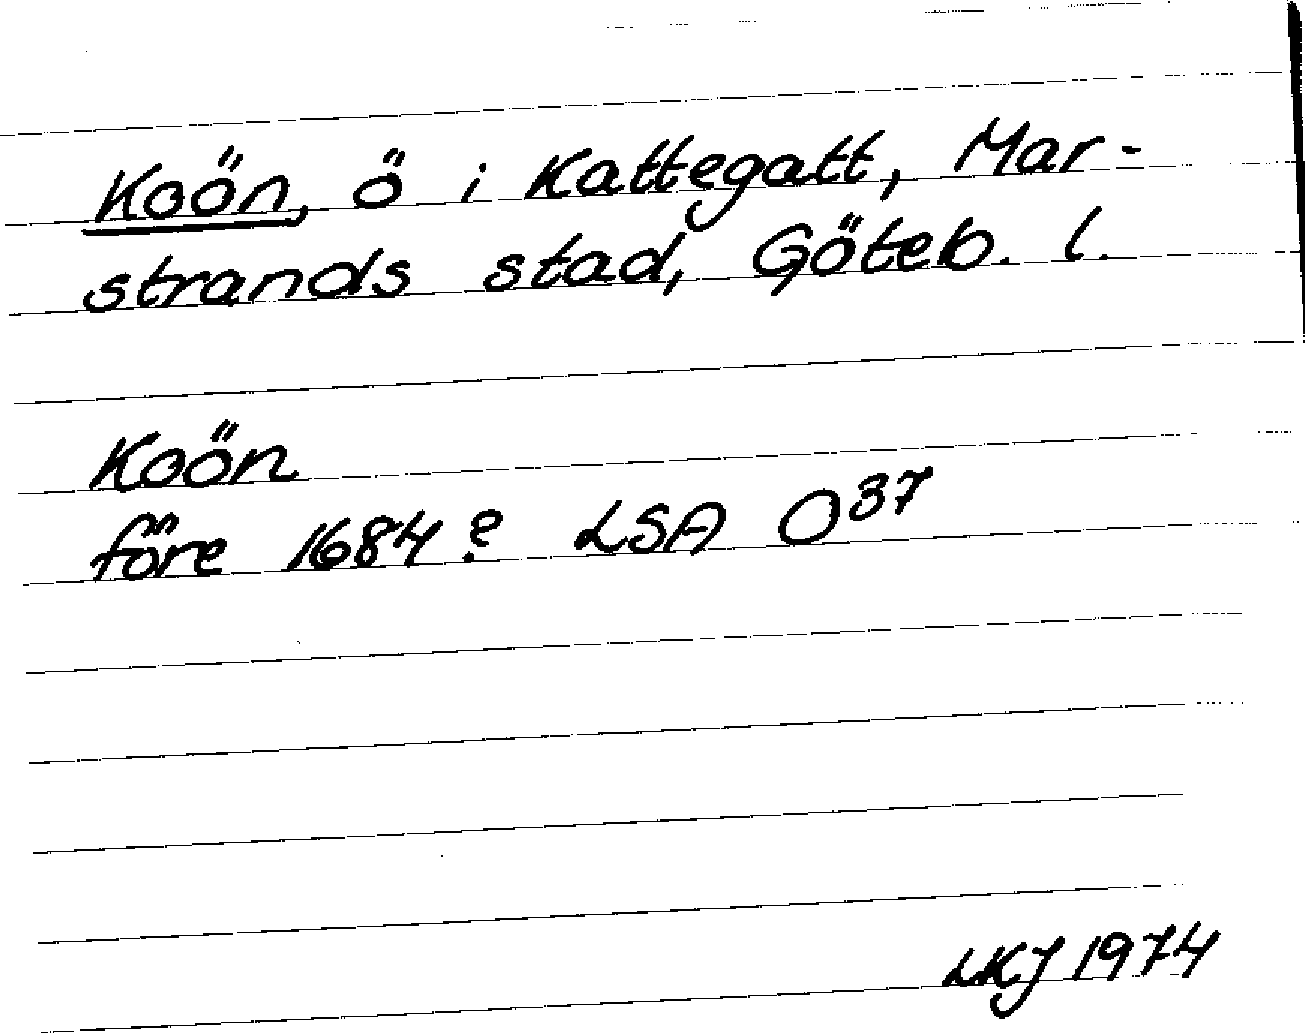 Koön, ö i Kattegatt, Mar-
strands stad, Göteb. l.
Koön
före 1684? LSA O³⁷
LKJ 1974